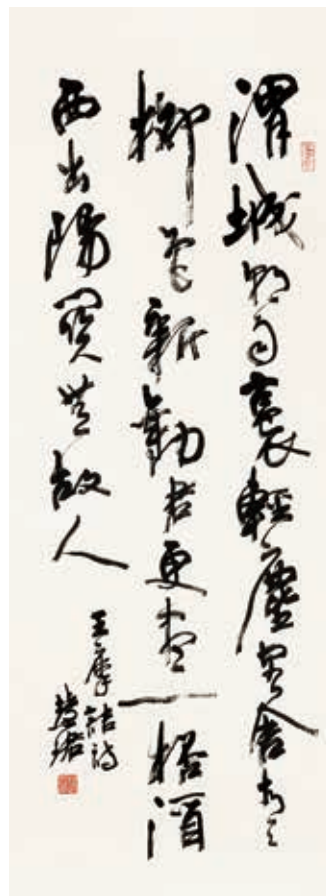 渭城朝雨裛輕塵客舍青々
柳色新勸君更盡一桮酒
西出陽關無故人
王摩詰詩
慧珺